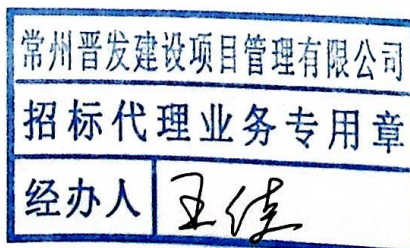 常州晋发建设项目管理有限公司
招标代理业务专用章
经办人 王佳